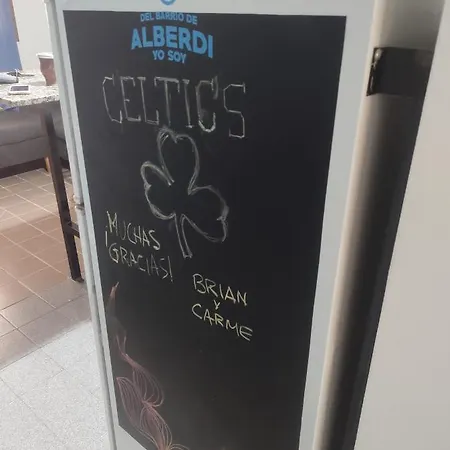 DEL BARRIO DE
ALBERDI
YO SOY
CELTIC'S
¡MUCHAS
GRACIAS!
BRIAN
Y
CARME